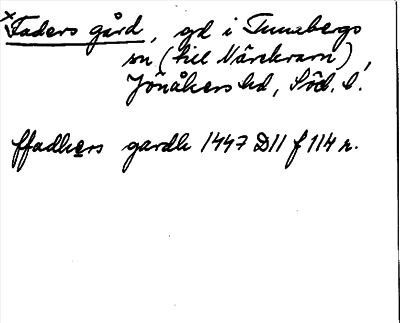 ×Faders gård, gd i Tunabergs
sn (till Närekvarn),
Jönåkers hd, Söd. l.
ffadhers gardh 1447 D11 f 114 r.